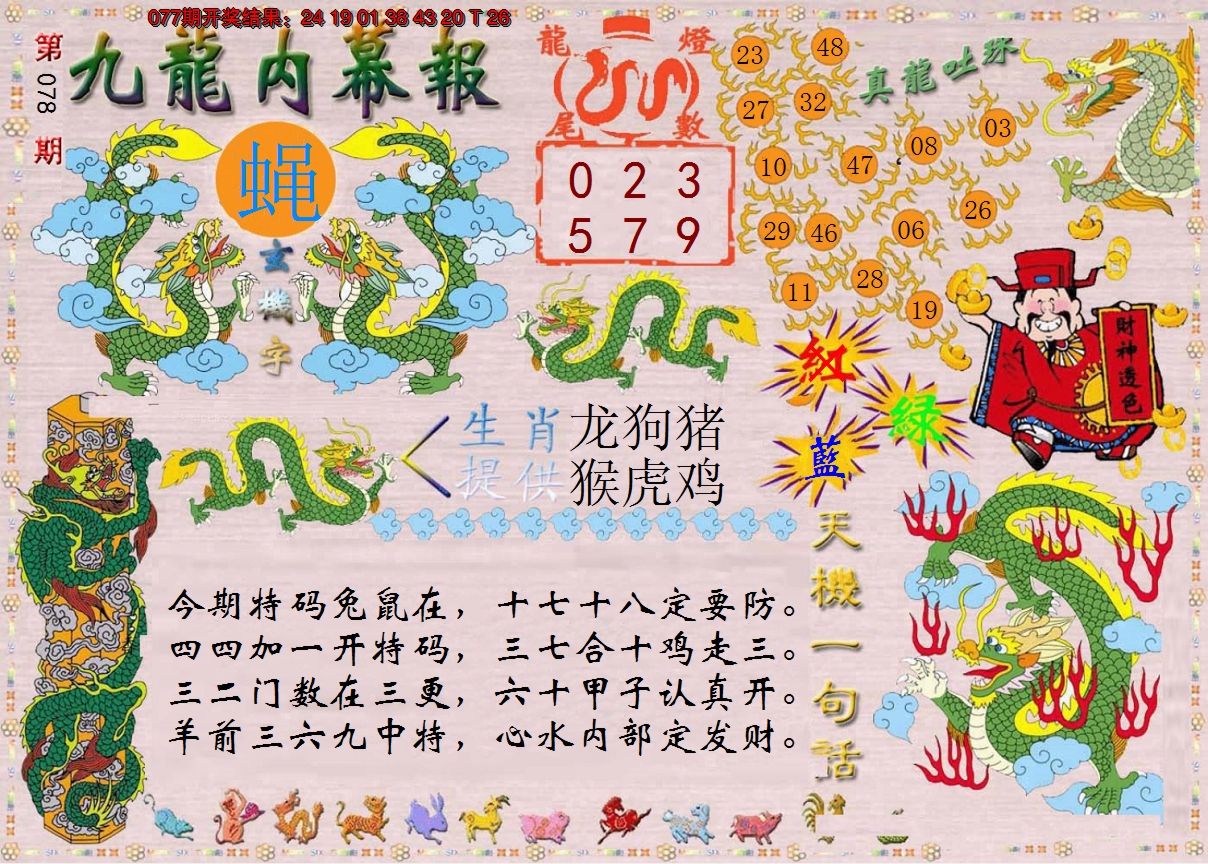 077期开奖结果：24 19 01 38 43 20 T 26
第078期
九龍内幕報
蝇
玄機字
龍燈
尾數
0 2 3
5 7 9
真龍吐珠
23 48
27 32
10 47 08 03
29 46 06 26
11 28 19
財神透色
紅
綠
藍
生肖 龙狗猪
提供 猴虎鸡
今期特码兔鼠在，十七十八定要防。
四四加一开特码，三七合十鸡走三。
三二门数在三更，六十甲子认真开。
羊前三六九中特，心水内部定发财。
天機一句話